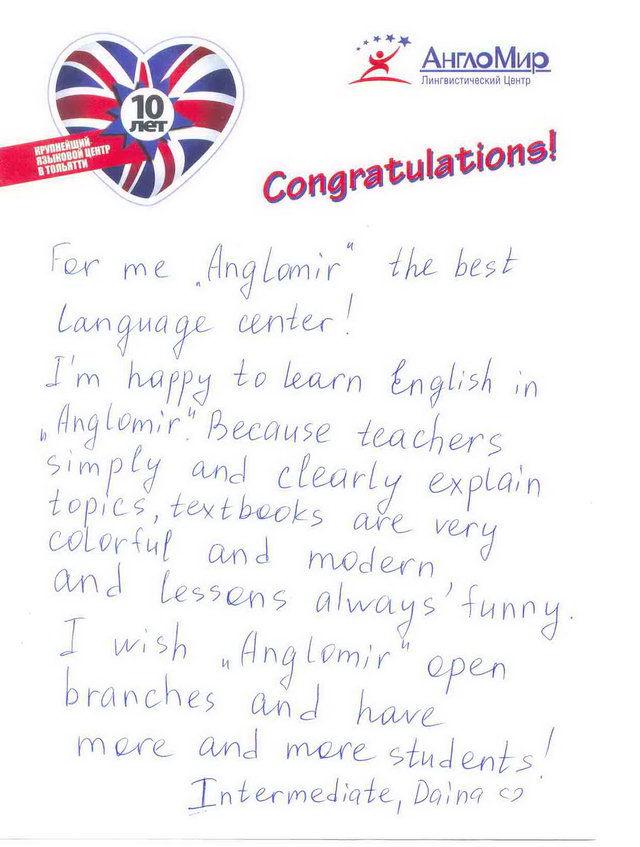 10
лет
КРУПНЕЙШИЙ
ЯЗЫКОВОЙ ЦЕНТР
В ТОЛЬЯТТИ
АнглоМир
Лингвистический Центр
Congratulations!
For me „Anglomir" the best
language center!
I'm happy to learn English in
„Anglomir". Because teachers
simply and clearly explain
topics, textbooks are very
colorful and modern
and lessons always' funny.
I wish „Anglomir" open
branches and have
more and more students!
Intermediate, Daina